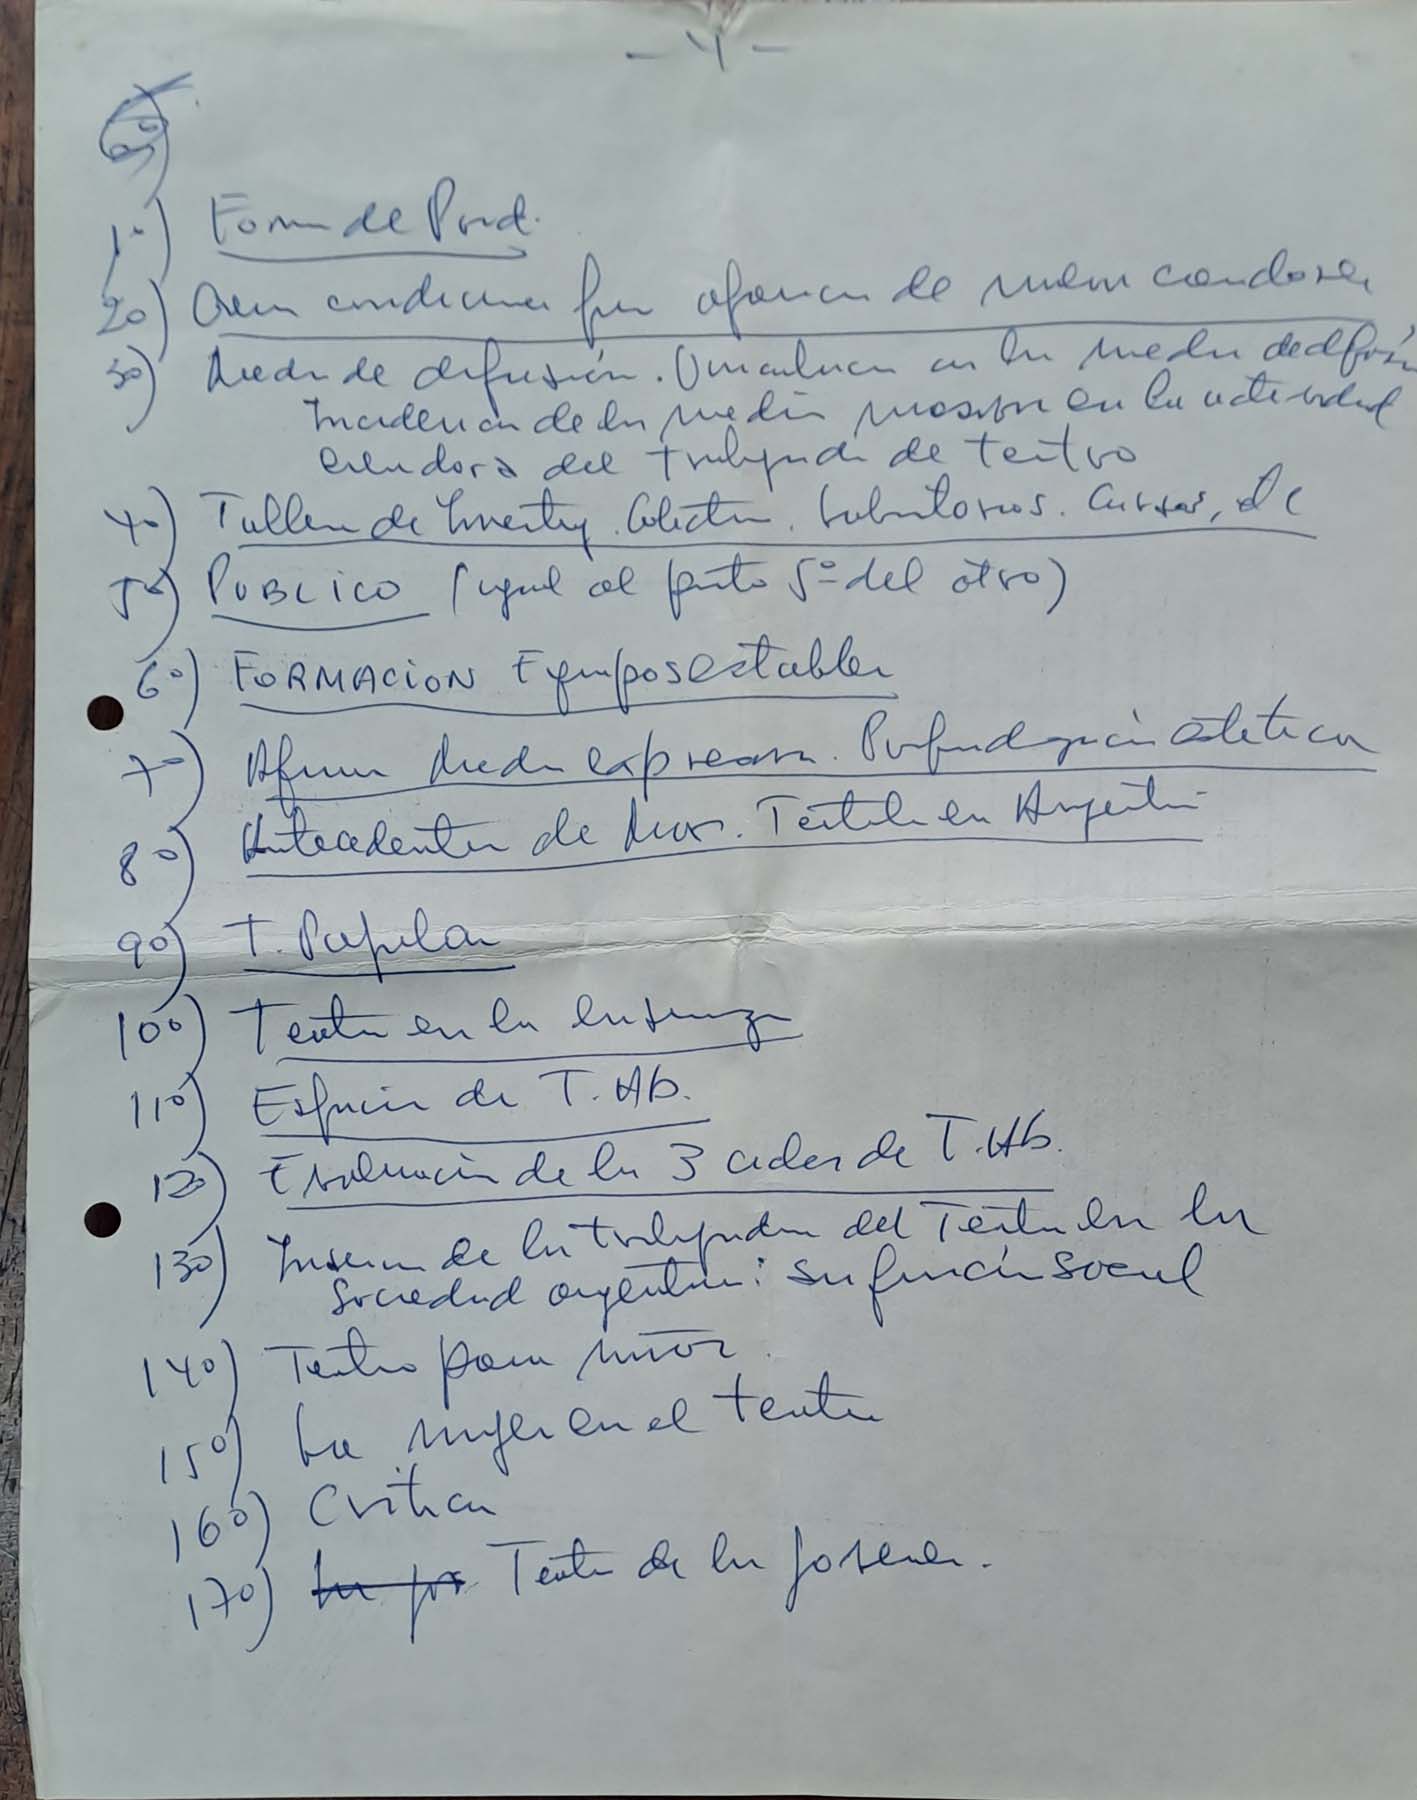 - 4 -
1º) Form de Prod.
2º) Crear condiciones para aparicion de nuevos creadores
3º) Medios de difusión. Vinculacion con los medios de difusión
Incidencia de los medios masivos en la actividad
creadora del trabajador de teatro
4º) Talleres de Investig. Colectiva. Laboratorios. Cursos, etc
5º) PUBLICO (igual al punto 5º del otro)
6º) FORMACION Equipos estables
7º) Afirmar Medios expresivos. Profundización estética
8º) Antecedentes de Mov. Teatrales en Argentina
9º) T. Popular
10º) Teatro en la enseñanza
11º) Esfuerzo de T. Ab.
12º) Evaluación de los 3 ciclos de T. Ab.
13º) Inserción de los trabajadores del Teatro en la
Sociedad argentina: su función social
14º) Teatro para niños.
15º) La mujer en el teatro
16º) Crítica
17º) Teatro de los jóvenes.